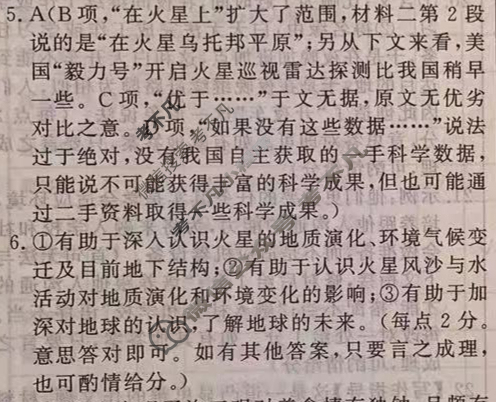 5. A(B项,“在火星上”扩大了范围,材料二第2段
说的是“在火星乌托邦平原”;另从下文来看,美
国“毅力号”开启火星巡视雷达探测比我国稍早
一些。C项,“优于……”于文无据,原文无优劣
对比之意。项,“如果没有这些数据……”说法
过于绝对,没有我国自主获取的一手科学数据,
只能说不可能获得丰富的科学成果,但也可能通
过二手资料取得一些科学成果。)
6. ①有助于深入认识火星的地质演化、环境气候变
迁及目前地下结构;②有助于认识火星风沙与水
活动对地质演化和环境变化的影响;③有助于加
深对地球的认识,了解地球的未来。(每点2分。
意思答对即可。如有其他答案,只要言之成理,
也可酌情给分。)